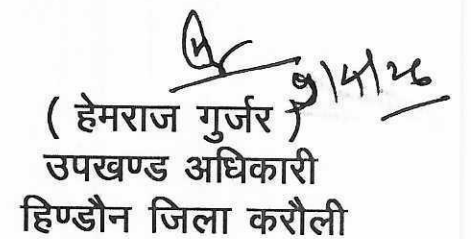 9/4/26
( हेमराज गुर्जर )
उपखण्ड अधिकारी
हिण्डौन जिला करौली